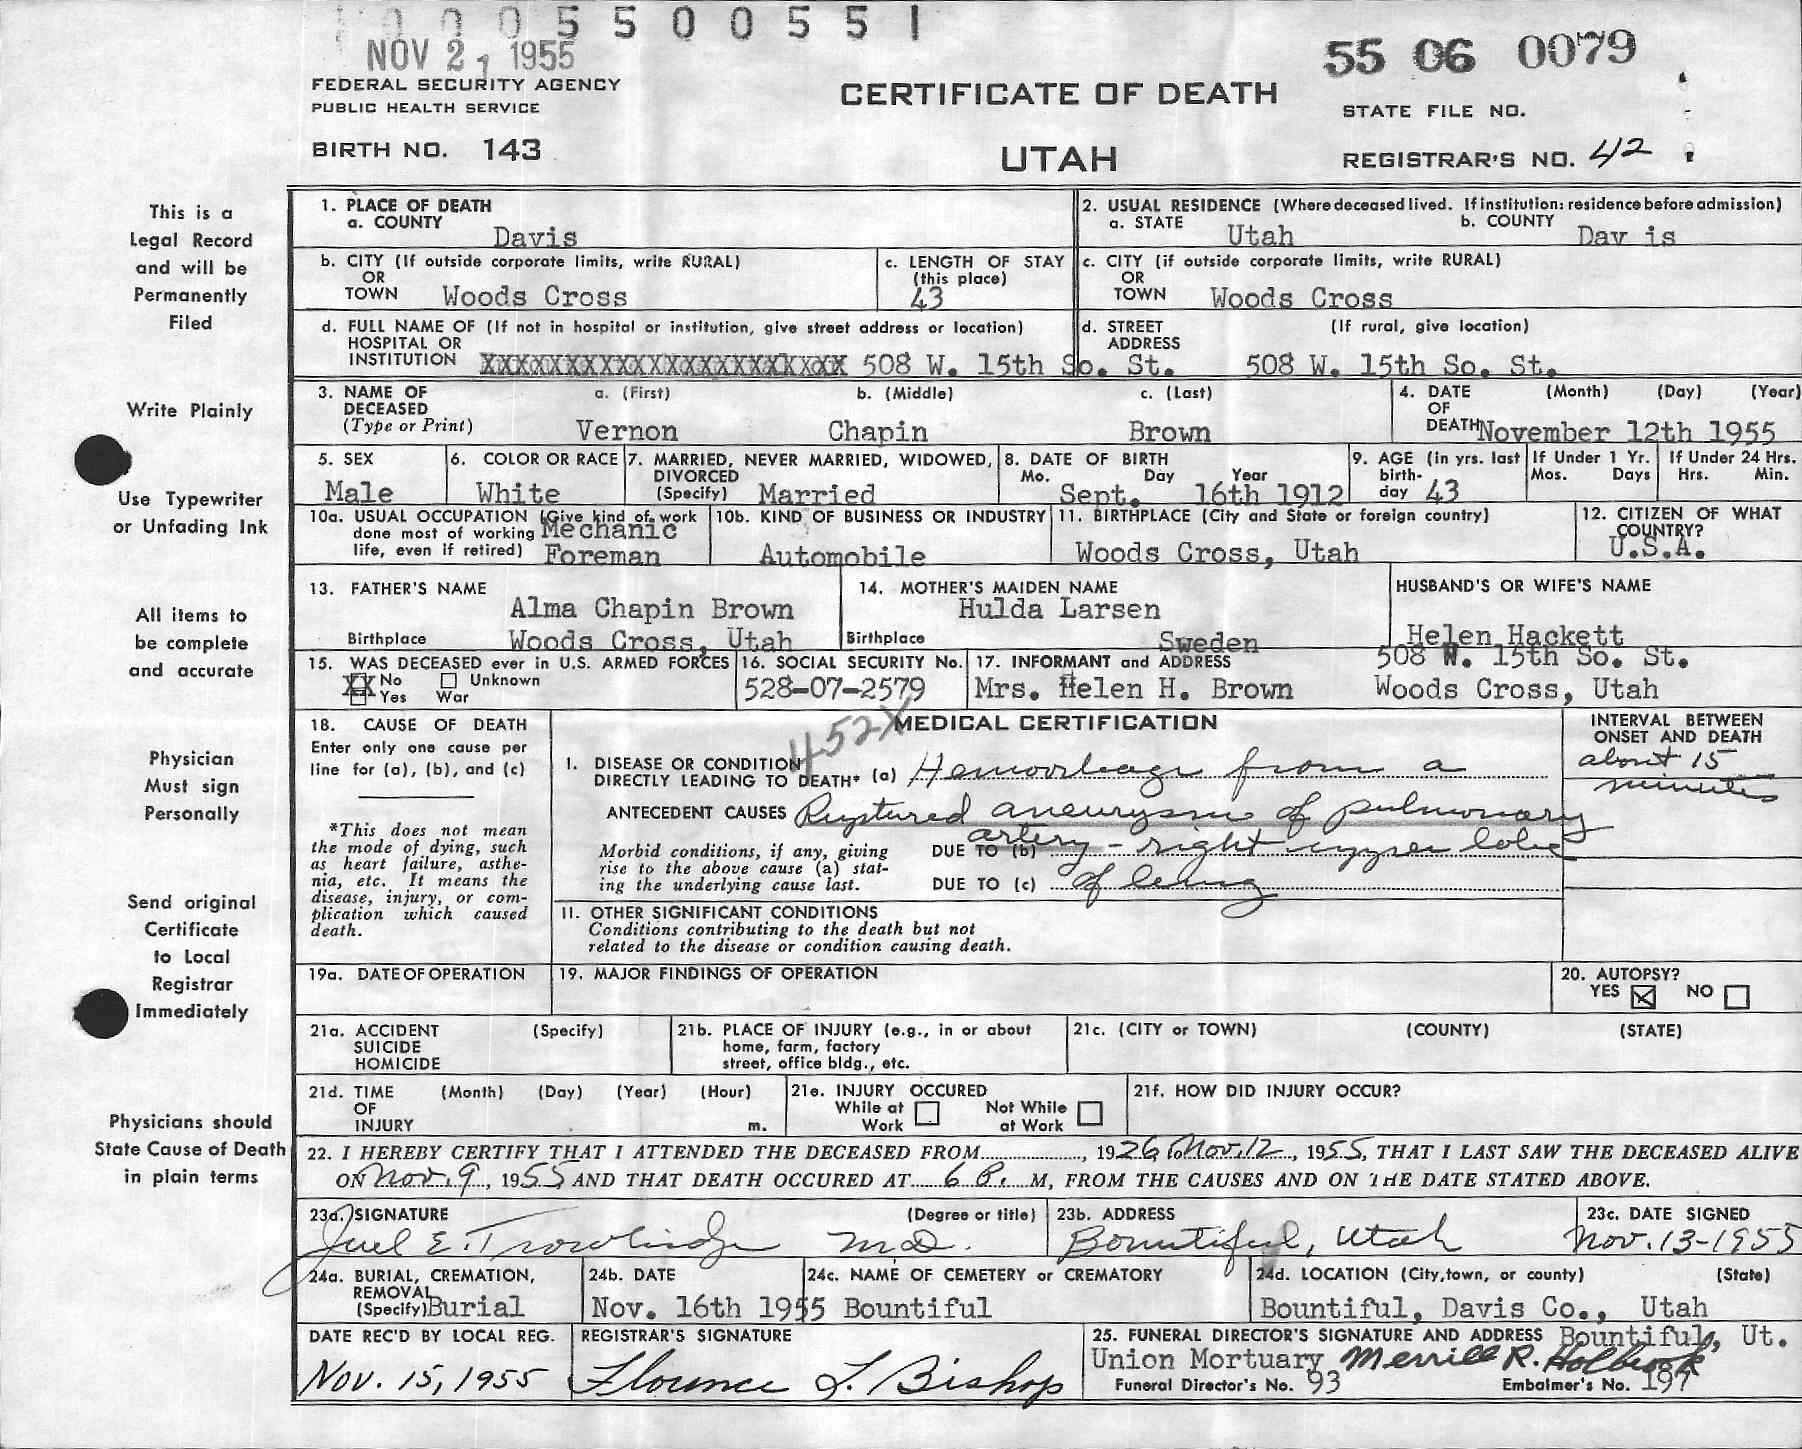 0 0 0 5 5 0 0 5 5 1
NOV 21 1955
55 06 0079
FEDERAL SECURITY AGENCY
PUBLIC HEALTH SERVICE
CERTIFICATE OF DEATH
STATE FILE NO.
BIRTH NO. 143
UTAH
REGISTRAR'S NO. 42
This is a
Legal Record
and will be
Permanently
Filed
Write Plainly
Use Typewriter
or Unfading Ink
All items to
be complete
and accurate
Physician
Must sign
Personally
Send original
Certificate
to Local
Registrar
Immediately
Physicians should
State Cause of Death
in plain terms
1. PLACE OF DEATH
a. COUNTY Davis
2. USUAL RESIDENCE (Where deceased lived. If institution: residence before admission)
a. STATE Utah b. COUNTY Dav is
b. CITY (If outside corporate limits, write RURAL)
OR
TOWN Woods Cross
c. LENGTH OF STAY
(this place)
43
c. CITY (if outside corporate limits, write RURAL)
OR
TOWN Woods Cross
d. FULL NAME OF (If not in hospital or institution, give street address or location)
HOSPITAL OR
INSTITUTION XXXXXXXXXXXXXXXXXXXXXX 508 W. 15th So. St.
d. STREET (If rural, give location)
ADDRESS
508 W. 15th So. St.
3. NAME OF a. (First) b. (Middle) c. (Last)
DECEASED
(Type or Print) Vernon Chapin Brown
4. DATE (Month) (Day) (Year)
OF
DEATH November 12th 1955
5. SEX
Male
6. COLOR OR RACE
White
7. MARRIED, NEVER MARRIED, WIDOWED,
DIVORCED
(Specify) Married
8. DATE OF BIRTH
Mo. Day Year
Sept. 16th 1912
9. AGE (in yrs. last
birth-
day 43
If Under 1 Yr.
Mos. Days
If Under 24 Hrs.
Hrs. Min.
10a. USUAL OCCUPATION (Give kind of work
done most of working Mechanic
life, even if retired) Foreman
10b. KIND OF BUSINESS OR INDUSTRY
Automobile
11. BIRTHPLACE (City and State or foreign country)
Woods Cross, Utah
12. CITIZEN OF WHAT
COUNTRY?
U.S.A.
13. FATHER'S NAME
Alma Chapin Brown
Birthplace Woods Cross, Utah
14. MOTHER'S MAIDEN NAME
Hulda Larsen
Birthplace Sweden
HUSBAND'S OR WIFE'S NAME
Helen Hackett
15. WAS DECEASED ever in U.S. ARMED FORCES
XX No Unknown
Yes War
16. SOCIAL SECURITY No.
528-07-2579
17. INFORMANT and ADDRESS 508 W. 15th So. St.
Mrs. Helen H. Brown Woods Cross, Utah
18. CAUSE OF DEATH
Enter only one cause per
line for (a), (b), and (c)
*This does not mean
the mode of dying, such
as heart failure, asthe-
nia, etc. It means the
disease, injury, or com-
plication which caused
death.
452X
MEDICAL CERTIFICATION
INTERVAL BETWEEN
ONSET AND DEATH
I. DISEASE OR CONDITION
DIRECTLY LEADING TO DEATH* (a) Hemorrhage from a
about 15
minutes
ANTECEDENT CAUSES Ruptured aneurysm of pulmonary
Morbid conditions, if any, giving
rise to the above cause (a) stat-
ing the underlying cause last.
DUE TO (b) artery - right upper lobe
DUE TO (c) of lung
II. OTHER SIGNIFICANT CONDITIONS
Conditions contributing to the death but not
related to the disease or condition causing death.
19a. DATE OF OPERATION
19. MAJOR FINDINGS OF OPERATION
20. AUTOPSY?
YES X NO
21a. ACCIDENT (Specify)
SUICIDE
HOMICIDE
21b. PLACE OF INJURY (e.g., in or about
home, farm, factory
street, office bldg., etc.
21c. (CITY or TOWN) (COUNTY) (STATE)
21d. TIME (Month) (Day) (Year) (Hour)
OF
INJURY m.
21e. INJURY OCCURED
While at Work
Not While at Work
21f. HOW DID INJURY OCCUR?
22. I HEREBY CERTIFY THAT I ATTENDED THE DECEASED FROM ........, 1926, to Nov. 12, 1955, THAT I LAST SAW THE DECEASED ALIVE
ON Nov. 9, 1955 AND THAT DEATH OCCURED AT 6 P. M, FROM THE CAUSES AND ON THE DATE STATED ABOVE.
23a. SIGNATURE (Degree or title)
Juel E. Trowbridge M.D.
23b. ADDRESS
Bountiful, Utah
23c. DATE SIGNED
Nov. 13-1955
24a. BURIAL, CREMATION,
REMOVAL
(Specify) Burial
24b. DATE
Nov. 16th 1955
24c. NAME OF CEMETERY or CREMATORY
Bountiful
24d. LOCATION (City, town, or county) (State)
Bountiful, Davis Co., Utah
DATE REC'D BY LOCAL REG.
Nov. 15, 1955
REGISTRAR'S SIGNATURE
Florence L. Bishop
25. FUNERAL DIRECTOR'S SIGNATURE AND ADDRESS Bountiful, Ut.
Union Mortuary Merrill R. Holbrook
Funeral Director's No. 93 Embalmer's No. 197